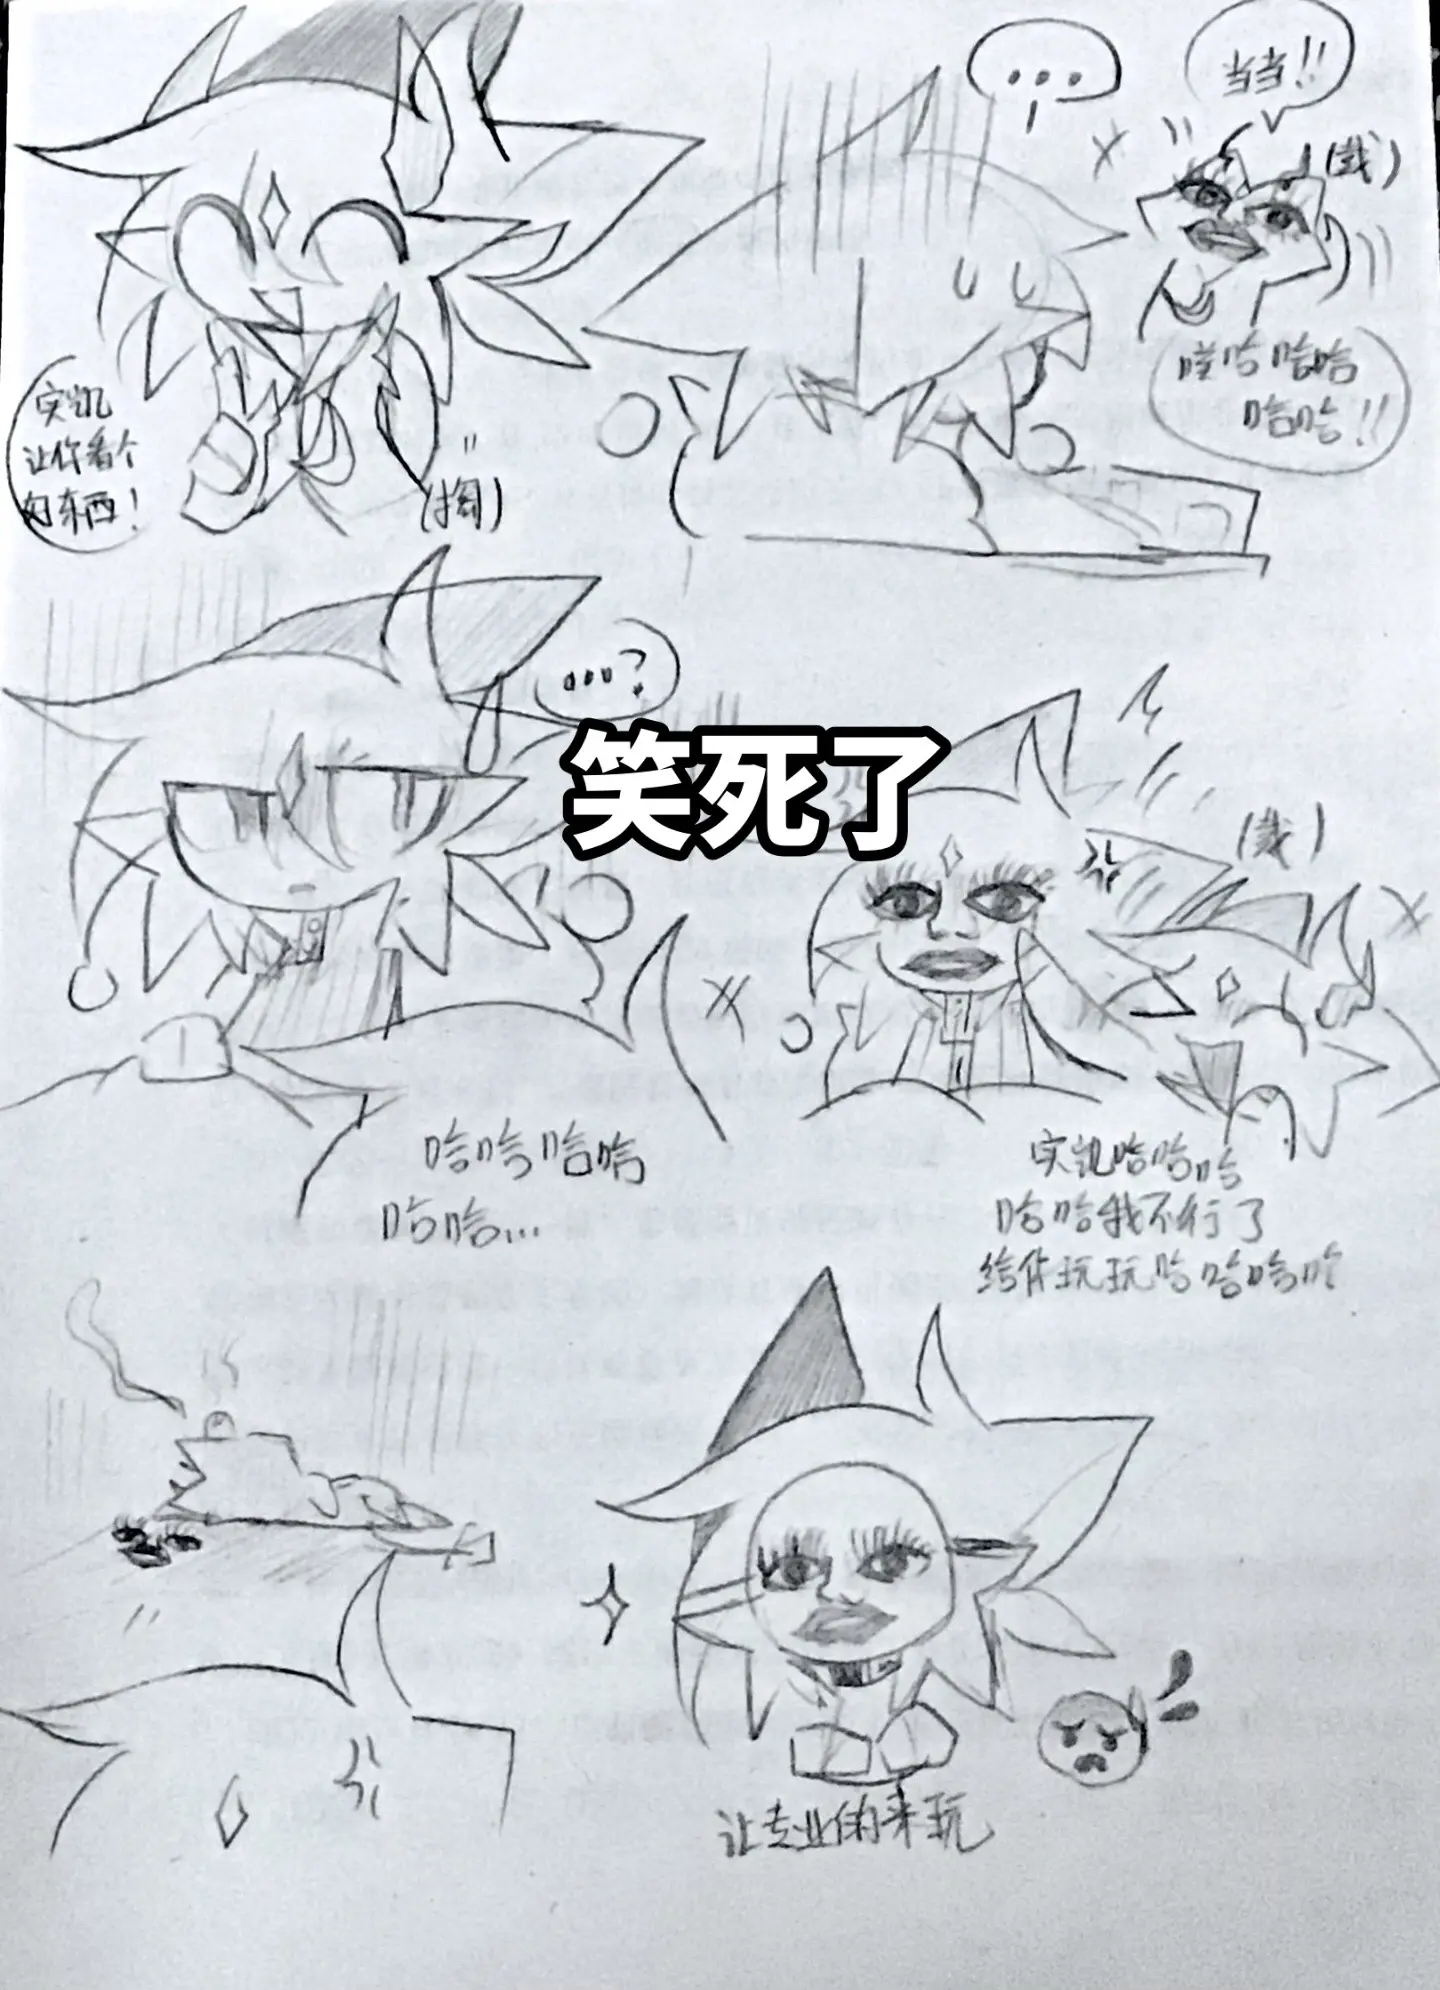 实凯
让你看个
好东西！
(掏)
...
当当!!
(戴)
哇哈哈哈
哈哈!!
...?
笑死了
(戴)
哈哈哈哈
哈哈...
实凯哈哈哈
哈哈我不行了
给你玩玩哈哈哈哈
让专业的来玩